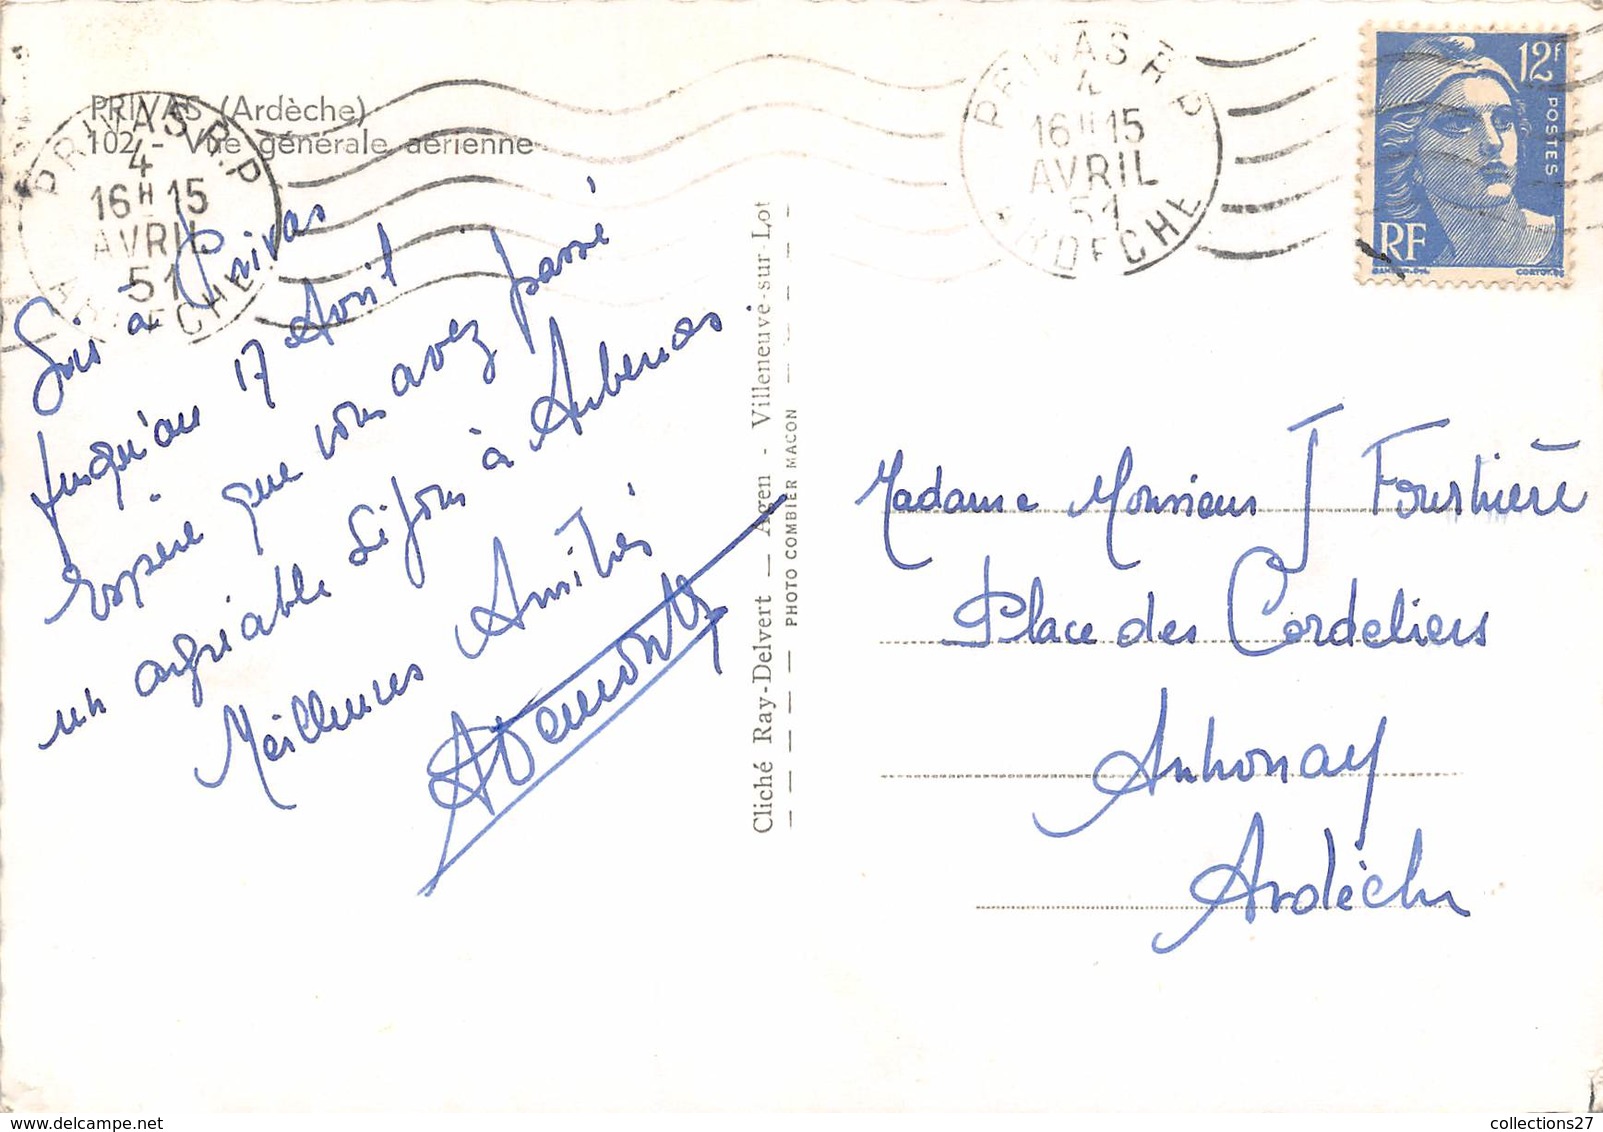 PRIVAS (Ardèche)
102 - Vue générale aérienne
PRIVAS R.P
4
16H15
AVRIL
51
ARDECHE
PRIVAS R P
4
16H15
AVRIL
51
ARDECHE
12F
POSTES
RF
GANDON.DEL.
CORTOT.SC
Suis à Privas
Jusqu'au 17 Avril
Espère que vous avez passé
un agréable séjour à Aubenas
Meilleures Amitiés
Cliché Ray-Delvert — Agen - Villeneuve-sur-Lot
PHOTO COMBIER MACON
Madame Monsieur J Foursthière
Place des Cordeliers
Annonay
Ardèche
collections27